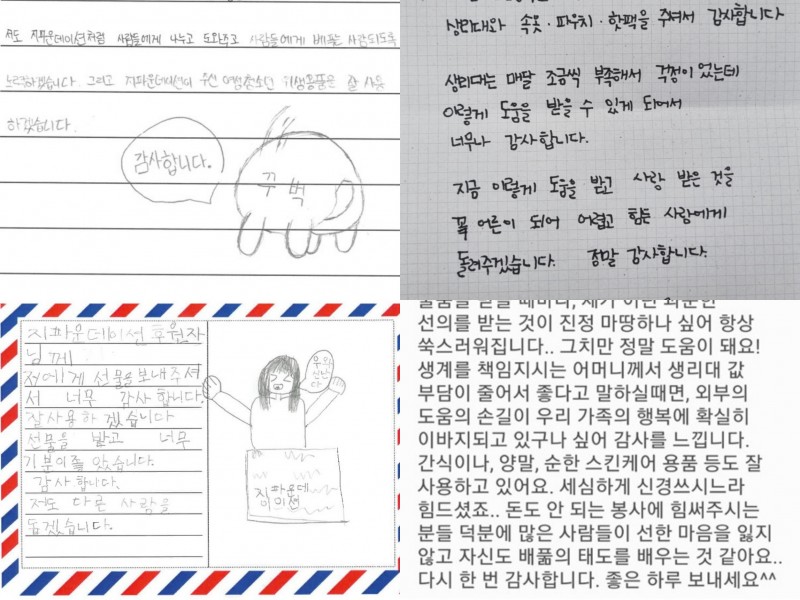 저도 지파운데이션처럼 사람들에게 나누고 도와주고 사람들에게 베푸는 사람되도록
노력하겠습니다 그리고 지파운데이션이 우선 여성청소년 위생용품을 잘 사용
하겠습니다.
감사합니다.
꾸벅
생리대와 속옷·파우치·핫팩을 주셔서 감사합니다
생리대는 매달 조금씩 부족해서 걱정이 었는데
이렇게 도움을 받을 수 있게 되어서
너무나 감사합니다.
지금 이렇게 도움을 받고 사랑 받은 것을
꼭 어른이 되어 어렵고 힘든 사람에게
돌려주겠습니다. 정말 감사합니다.
지파운데이션 후원자
님께
저에게 선물을 보내주셔
서 너무 감사합니다.
잘사용하겠습니다
선물을 받고 너무
기분이좋았습니다.
감사합니다.
저도 다른 사람을
돕겠습니다.
우와
신난
다
지파운데
이션
선의를 받는 것이 진정 마땅하나 싶어 항상
쑥스러워집니다.. 그치만 정말 도움이 돼요!
생계를 책임지시는 어머니께서 생리대 값
부담이 줄어서 좋다고 말하실때면, 외부의
도움의 손길이 우리 가족의 행복에 확실히
이바지되고 있구나 싶어 감사를 느낍니다.
간식이나, 양말, 순한 스킨케어 용품 등도 잘
사용하고 있어요. 세심하게 신경쓰시느라
힘드셨죠.. 돈도 안 되는 봉사에 힘써주시는
분들 덕분에 많은 사람들이 선한 마음을 잃지
않고 자신도 배풂의 태도를 배우는 것 같아요..
다시 한 번 감사합니다. 좋은 하루 보내세요^^